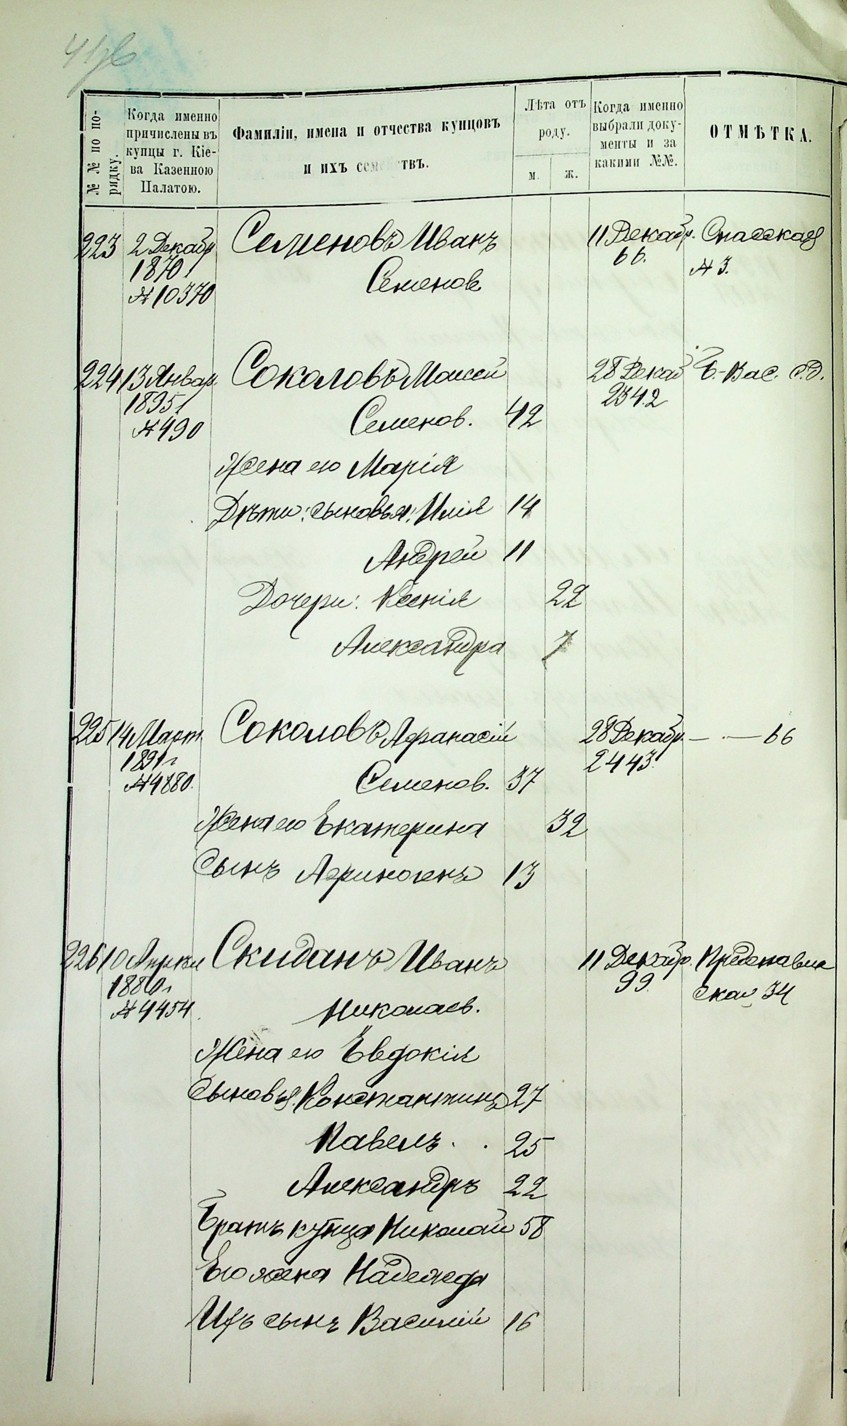 № № по по-
рядку.
Когда именно
причислены въ
купцы г. Кіе-
ва Казенною
Палатою.
Фамиліи, имена и отчества купцовъ
и ихъ семействъ.
Лѣта отъ
роду.
м.
ж.
Когда именно
выбрали доку-
менты и за
какими №№.
ОТМѢТКА.
223 2 Декабр Семеновъ Иванъ 11 Декабр. Спасская
1870 Семенов 66. № 3.
№ 10370
224 13 Январ Соколовъ Моисей 28 Декаб Б.-Вас. с.д.
1895 г Семенов. 42 2342
№ 490
Жена его Марія
Дѣти: сыновья: Илія 14
Андрей 11
Дочери: Ксенія 22
Александра 7
225 14 Март Соколовъ Афанасій 28 Декабр. — — 66
1891 г Семенов. 37 2443
№ 4880.
Жена его Екатерина 32
Сынъ Афиногенъ 13
226 10 Апрѣл Скиданъ Иванъ 11 Декабр. Предславин
1880 г Николаев. 99 ская 34
№ 4454
Жена его Евдокія
Сыновья: Константинъ 27
Павелъ 25
Александръ 22
Братъ купца Николай 58
Его жена Надежда
Ихъ сынъ Василій 16